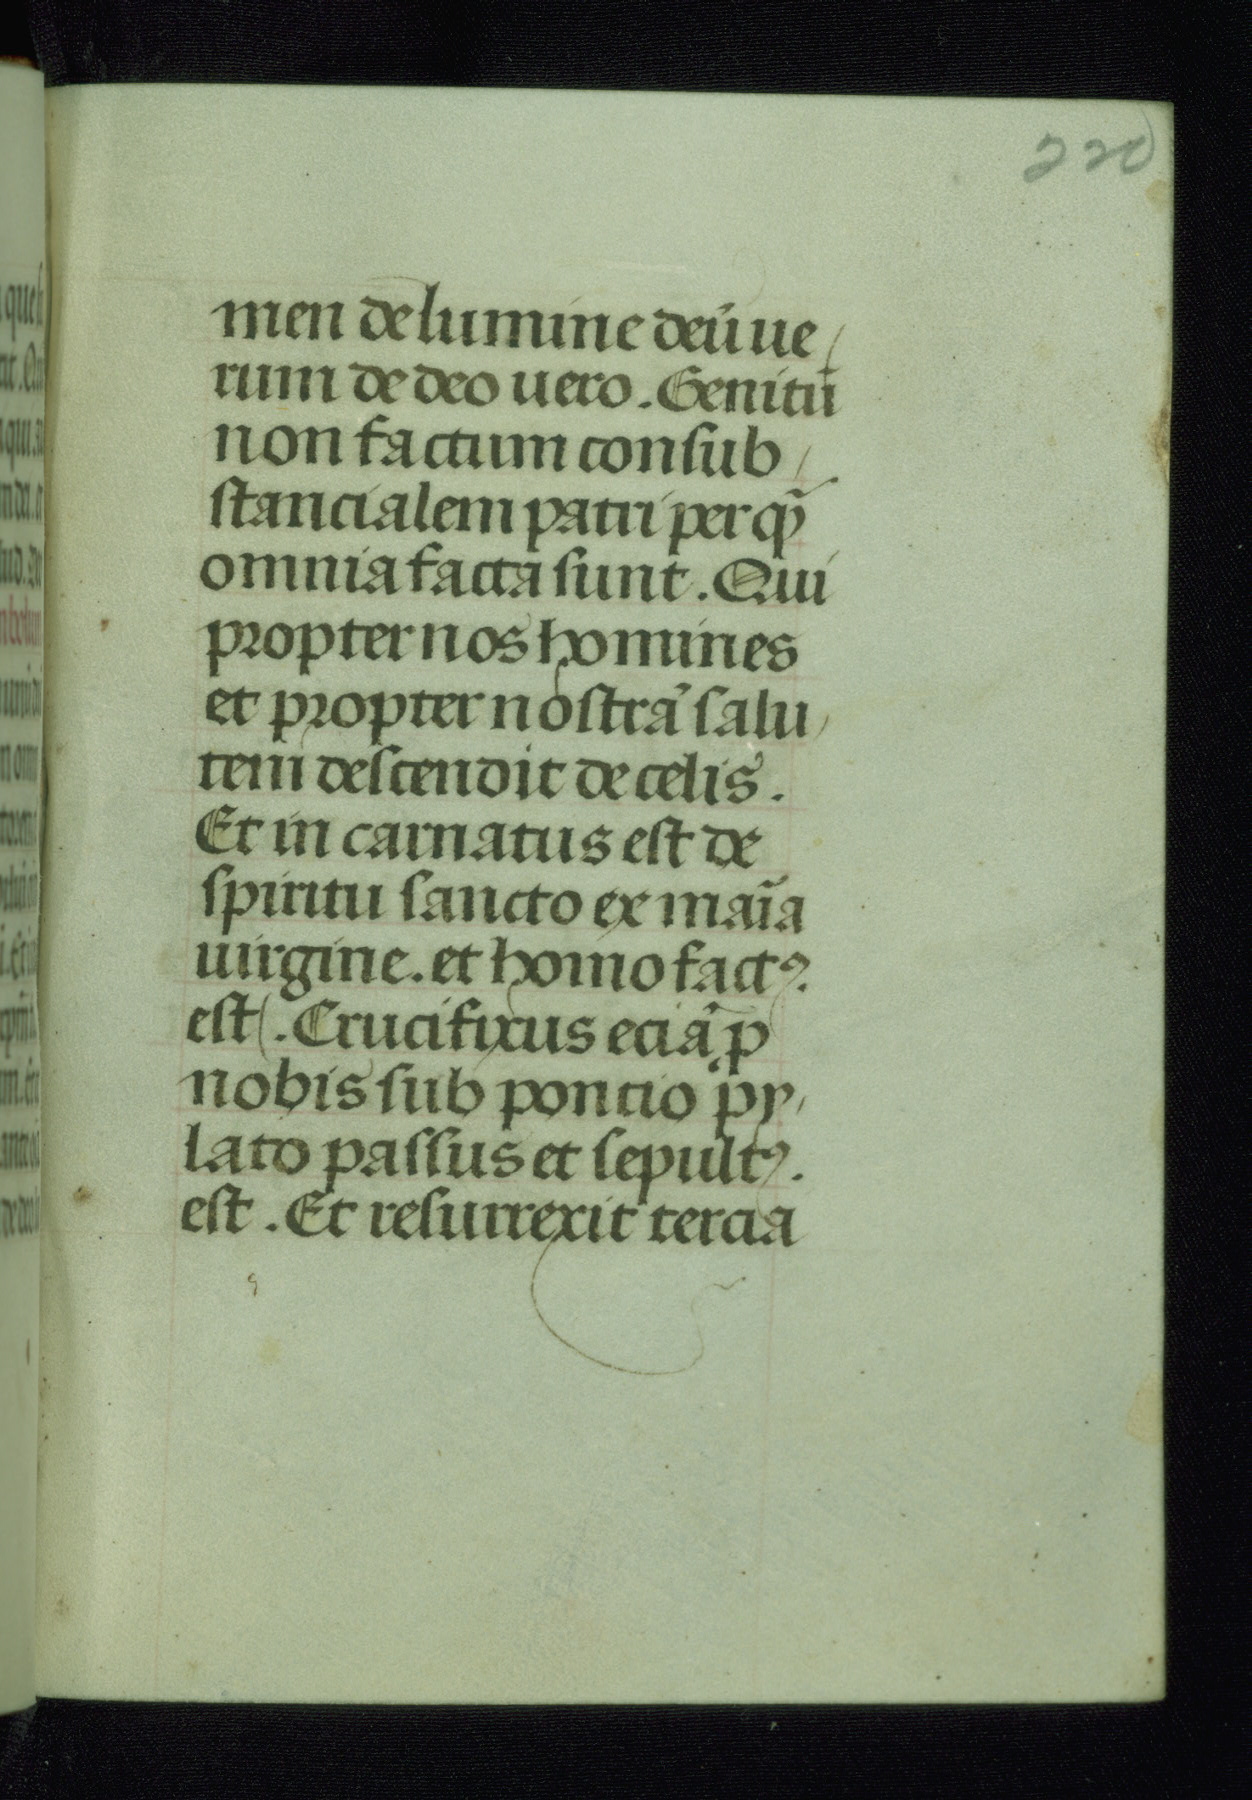 220
men de lumine deū ue/
rum de deo uero. Genitū
non factum consub/
stancialem patri per q̄
omnia facta sunt. Qui
propter nos homines
et propter nostrā salu/
tem descendit de celis.
Et in carnatus est de
spiritu sancto ex maīa
uirgine. et homo factꝰ.
est. Crucifixus eciā p
nobis sub poncio py/
lato passus et sepultꝰ.
est. Et resurrexit tercia